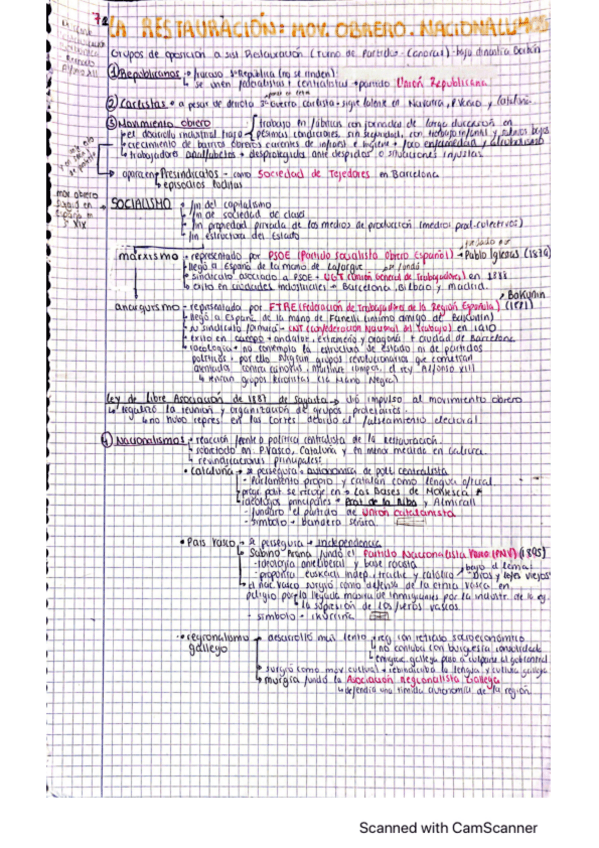 7a LA RESTAURACIÓN: MOV. OBRERO. NACIONALISMOS
Grupos de oposición a sist Restauración (Turno de Partidos - Canovas) - bajo dinastía Borbón
① Republicanos → fracaso 1ª República (no se rinden):
se unen federalistas + centralistas → partido Unión Republicana
② Carlistas → a pesar de derrota 3ª Guerra carlista - sigue latente en Navarra, P. Vasco y Cataluña.
③ Movimiento obrero
trabajo en fábricas con jornadas de larga duración en
el desarrollo industrial trajo
pésimas condiciones, sin seguridad, con trabajo infantil y salarios bajos
crecimiento de barrios obreros carentes de infraest. e higiene + foco enfermedad y alcoholismo
trabajadores analfabetos + desprotegidos ante despidos o situaciones injustas
aparecen Presindicatos - como Sociedad de Tejedores en Barcelona
episodios luditas
mov obrero
surgió en
España m.
S XIX
SOCIALISMO
fin del capitalismo
fin de sociedad de clases
fin propiedad privada de los medios de producción (medios prod. colectivos)
fin estructura del Estado
fundado por
marxismo → representado por PSOE (Partido Socialista Obrero Español) → Pablo Iglesias (1879)
llegó a España de la mano de Lafargue
sindicato asociado a PSOE + UGT (Unión General de Trabajadores) en 1888
éxito en ciudades industriales - Barcelona, Bilbao y Madrid.
Bakunin
anarquismo - representado por FTRE (Federación de Trabajadores de la Región Española) (1881)
llegó a España de la mano de Fanelli (íntimo amigo de Bakunin)
sindicato - CNT (Confederación Nacional del Trabajo) en 1910
éxito en campo + andaluz, extremeño y aragonés + ciudad de Barcelona
ideología → no contempla la estructura de estado ni de partidos
políticos + por ello surgían grupos revolucionarios que cometían
atentados contra Canovas, Martínez Campos, el rey Alfonso XIII
+ eran grupos terroristas (la Mano Negra)
Ley de Libre Asociación de 1887 de Sagasta → dió impulso al movimiento obrero
legalizó la reunión y organización de grupos proletarios.
no hubo repres. en las Cortes debido al falseamiento electoral
④ Nacionalismos → reacción frente a política centralista de la Restauración.
sobretodo en P. Vasco, Cataluña y en menor medida en Galicia.
reivindicaciones principales:
• Cataluña → perseguía + autonomía de polít. centralista
- Parlamento propio y catalán como lengua oficial.
prog. polít se recoge en → Las Bases de Manresa
ideólogos principales + Prat de la Riba y Almirall
- fundaro el partido de Unión Catalanista
- símbolo + bandera señera
• País Vasco → perseguía → independencia
Sabino Arana fundó el Partido Nacionalista Vasco (PNV) (1895)
- ideología antiliberal y base racista
bajo el lema:
- proponía Euskadi indep., tradic. y católico
"Dios y leyes viejas"
el nac. vasco surgió como defensa de la etnia vasca en
peligro por la llegada masiva de inmigrantes por la industr. de la reg.
la supresión de los fueros vascos
- símbolo → ikurriña
• regionalismo gallego
desarrollo más lento → reg. con retraso socioeconómico
no contaba con burguesía consolidada
surgió como mov cultural + reivindicaba la lengua y cultura gallega
Murguía fundó la Asociación Regionalista Gallega
defendía una tímida autonomía de la región
Scanned with CamScanner